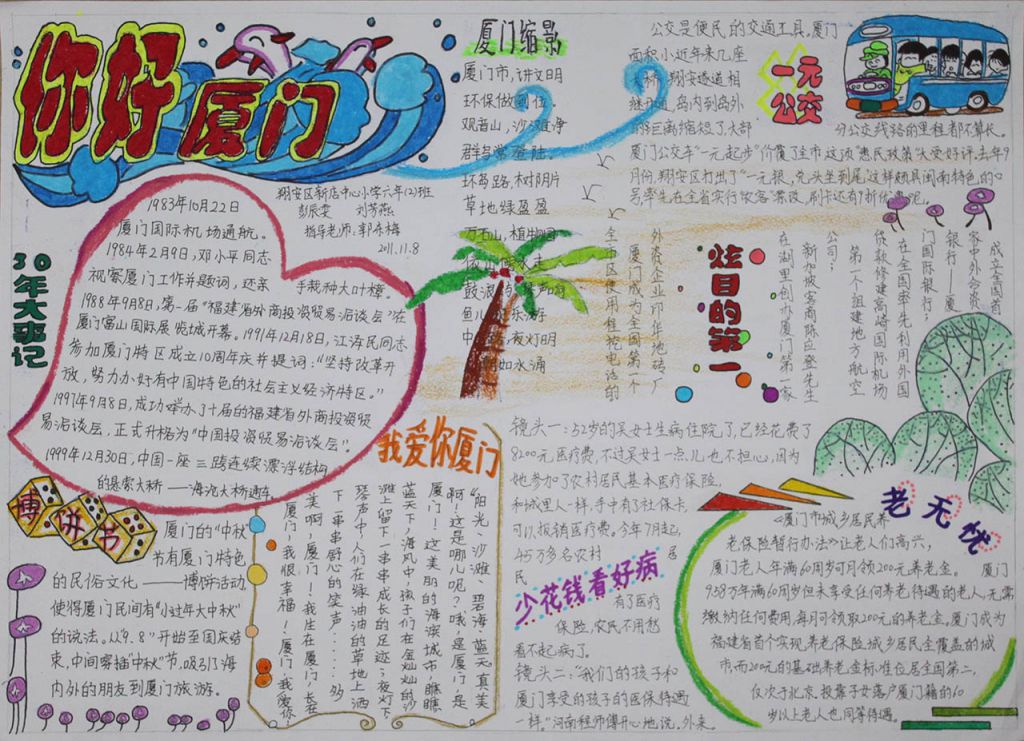 你好
厦门
翔安区新店中心小学六年(2)班
彭辰雯 刘芳燕
指导老师:郭冬梅
2011.11.8
30年大事记
1983年10月22日
厦门国际机场通航。
1984年2月9日,邓小平同志
视察厦门工作并题词,还亲
手栽种大叶樟。
1988年9月8日,第一届“福建省外商投资贸易洽谈会”在
厦门富山国际展览城开幕。1991年12月18日,江泽民同志
参加厦门特区成立10周年庆并提词:“坚持改革开
放,努力办好有中国特色的社会主义经济特区。”
1997年9月8日,成功举办了十届的福建省外商投资贸
易洽谈会,正式升格为“中国投资贸易洽谈会”。
1999年12月30日,中国一座三跨连续漂浮结构
的悬索大桥——海沧大桥通车
厦门缩影
厦门市,讲文明
环保做到位。
观音山,沙滩净
群鸟常登陆。
环岛路,树阴片
草地绿盈盈
万石山,植物园
鼓浪
鱼儿 乐游
中 ,夜灯明
如水涌
公交是便民的交通工具。厦门
面积小近年来几座
大桥、翔安隧道相
继开通,岛内到岛外
的距离缩短了,大部
分公交线路的里程都不算长。
厦门公交车“一元起步”价覆了全市这项“惠民政策”大受好评。去年9
月份,翔安区打出了“一元银,兑头坐到尾”这样颇具闽南特色的口
号,率先在全省实行农客票改,刷卡还有7折优惠呢。
一元
公交
炫目的第一
成立首
家中外合资
银行:厦
门国际银行;
在全国率先利用外国
贷款修建高崎国际机场
第一个组建地方航空
公司;
新加坡客商陈应登先生
在湖里创办厦门第一家
外资企业印华地砖厂
厦门成为全国第一个
全市区使用程控电话的
我爱你厦门
“阳光、沙滩、碧海、蓝天,真美
啊!这是哪儿呢?哦,是厦门,是
厦门!这美丽的海滨城市,瞧瞧
蓝天下,海风中,孩子们在金灿灿的沙
滩上留下一串串成长的足迹;夜灯下
琴声中,人们在绿油油的草地上洒
下一串串舒心的笑声……多
美啊,厦门!我生在厦门,长在
厦门,我很幸福!厦门,我爱你
博饼节
厦门的“中秋
节有厦门特色
的民俗文化——博饼活动,
使得厦门民间有“小过年大中秋”
的说法。以“9.8”开始至国庆结
束,中间穿插“中秋”节,吸引了海
内外的朋友到厦门旅游。
少花钱看好病
镜头一:52岁的吴女士生病住院了,已经花费了
8200元医疗费,不过吴女士一点儿也不担心,因为
她参加了农村居民基本医疗保险,
和城里人一样,手中有了社保卡,
可以报销医疗费。今年7月起,
45万多名农村居
民
有了医疗
保险,农民不用愁
看不起病了。
镜头二:“我们的孩子和
厦门享受的孩子的医保待遇
一样。”河南程师傅开心地说。外来
老无忧
《厦门市城乡居民养
老保险暂行办法》让老人们高兴,
厦门老人年满60周岁可月领200元养老金。厦门
9358万年满60周岁但未享受任何养老待遇的老人,无需
缴纳任何费用,每月可领取200元的养老金。厦门成为
福建省首个实现养老保险城乡居民全覆盖的城
市,而200元的基础养老金标准位居全国第二,
仅次于北京,投靠子女落户厦门籍的60
岁以上老人也同等待遇。